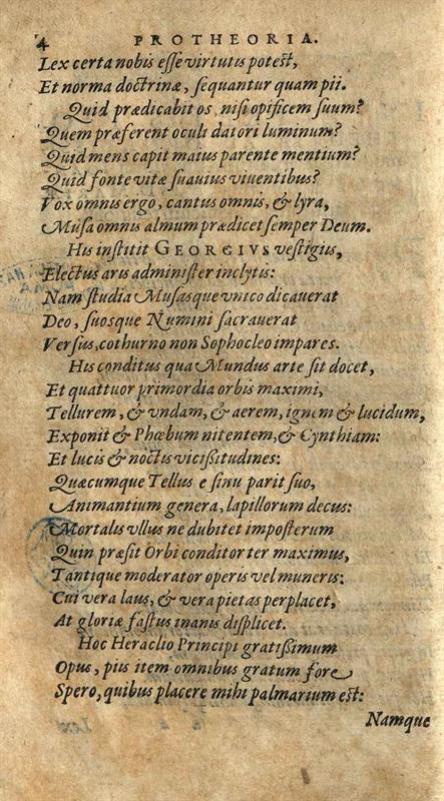 4 PROTHEORIA.
Lex certa nobis esse virtutis potest,
Et norma doctrinæ, sequantur quam pii.
Quid prædicabit os, nisi opificem suum?
Quem præferent oculi datori luminum?
Quid mens capit maius parente mentium?
Quid fonte vitæ suauius viuentibus?
Vox omnis ergo, cantus omnis, & lyra,
Musa omnis almum prædicet semper Deum.
His institit GEORGIVS vestigiis,
Electus aris administer inclytis:
Nam studia Musasque vnico dicauerat
Deo, suosque Numini sacrauerat
Versus, cothurno non Sophocleo impares.
His conditus qua Mundus arte sit docet,
Et quattuor primordia orbis maximi,
Tellurem, & vndam, & aerem, ignem & lucidum,
Exponit & Phœbum nitentem, & Cynthiam:
Et lucis & noctis vicißitudines:
Quæcumque Tellus e sinu parit suo,
Animantium genera, lapillorum decus:
Mortalis vllus ne dubitet imposterum
Quin præsit Orbi conditor ter maximus,
Tantique moderator operis vel muneris:
Cui vera laus, & vera pietas perplacet,
At gloriæ fastus inanis displicet.
Hoc Heraclio Principi gratißimum
Opus, piis item omnibus gratum fore
Spero, quibus placere mihi palmarium est:
Namque